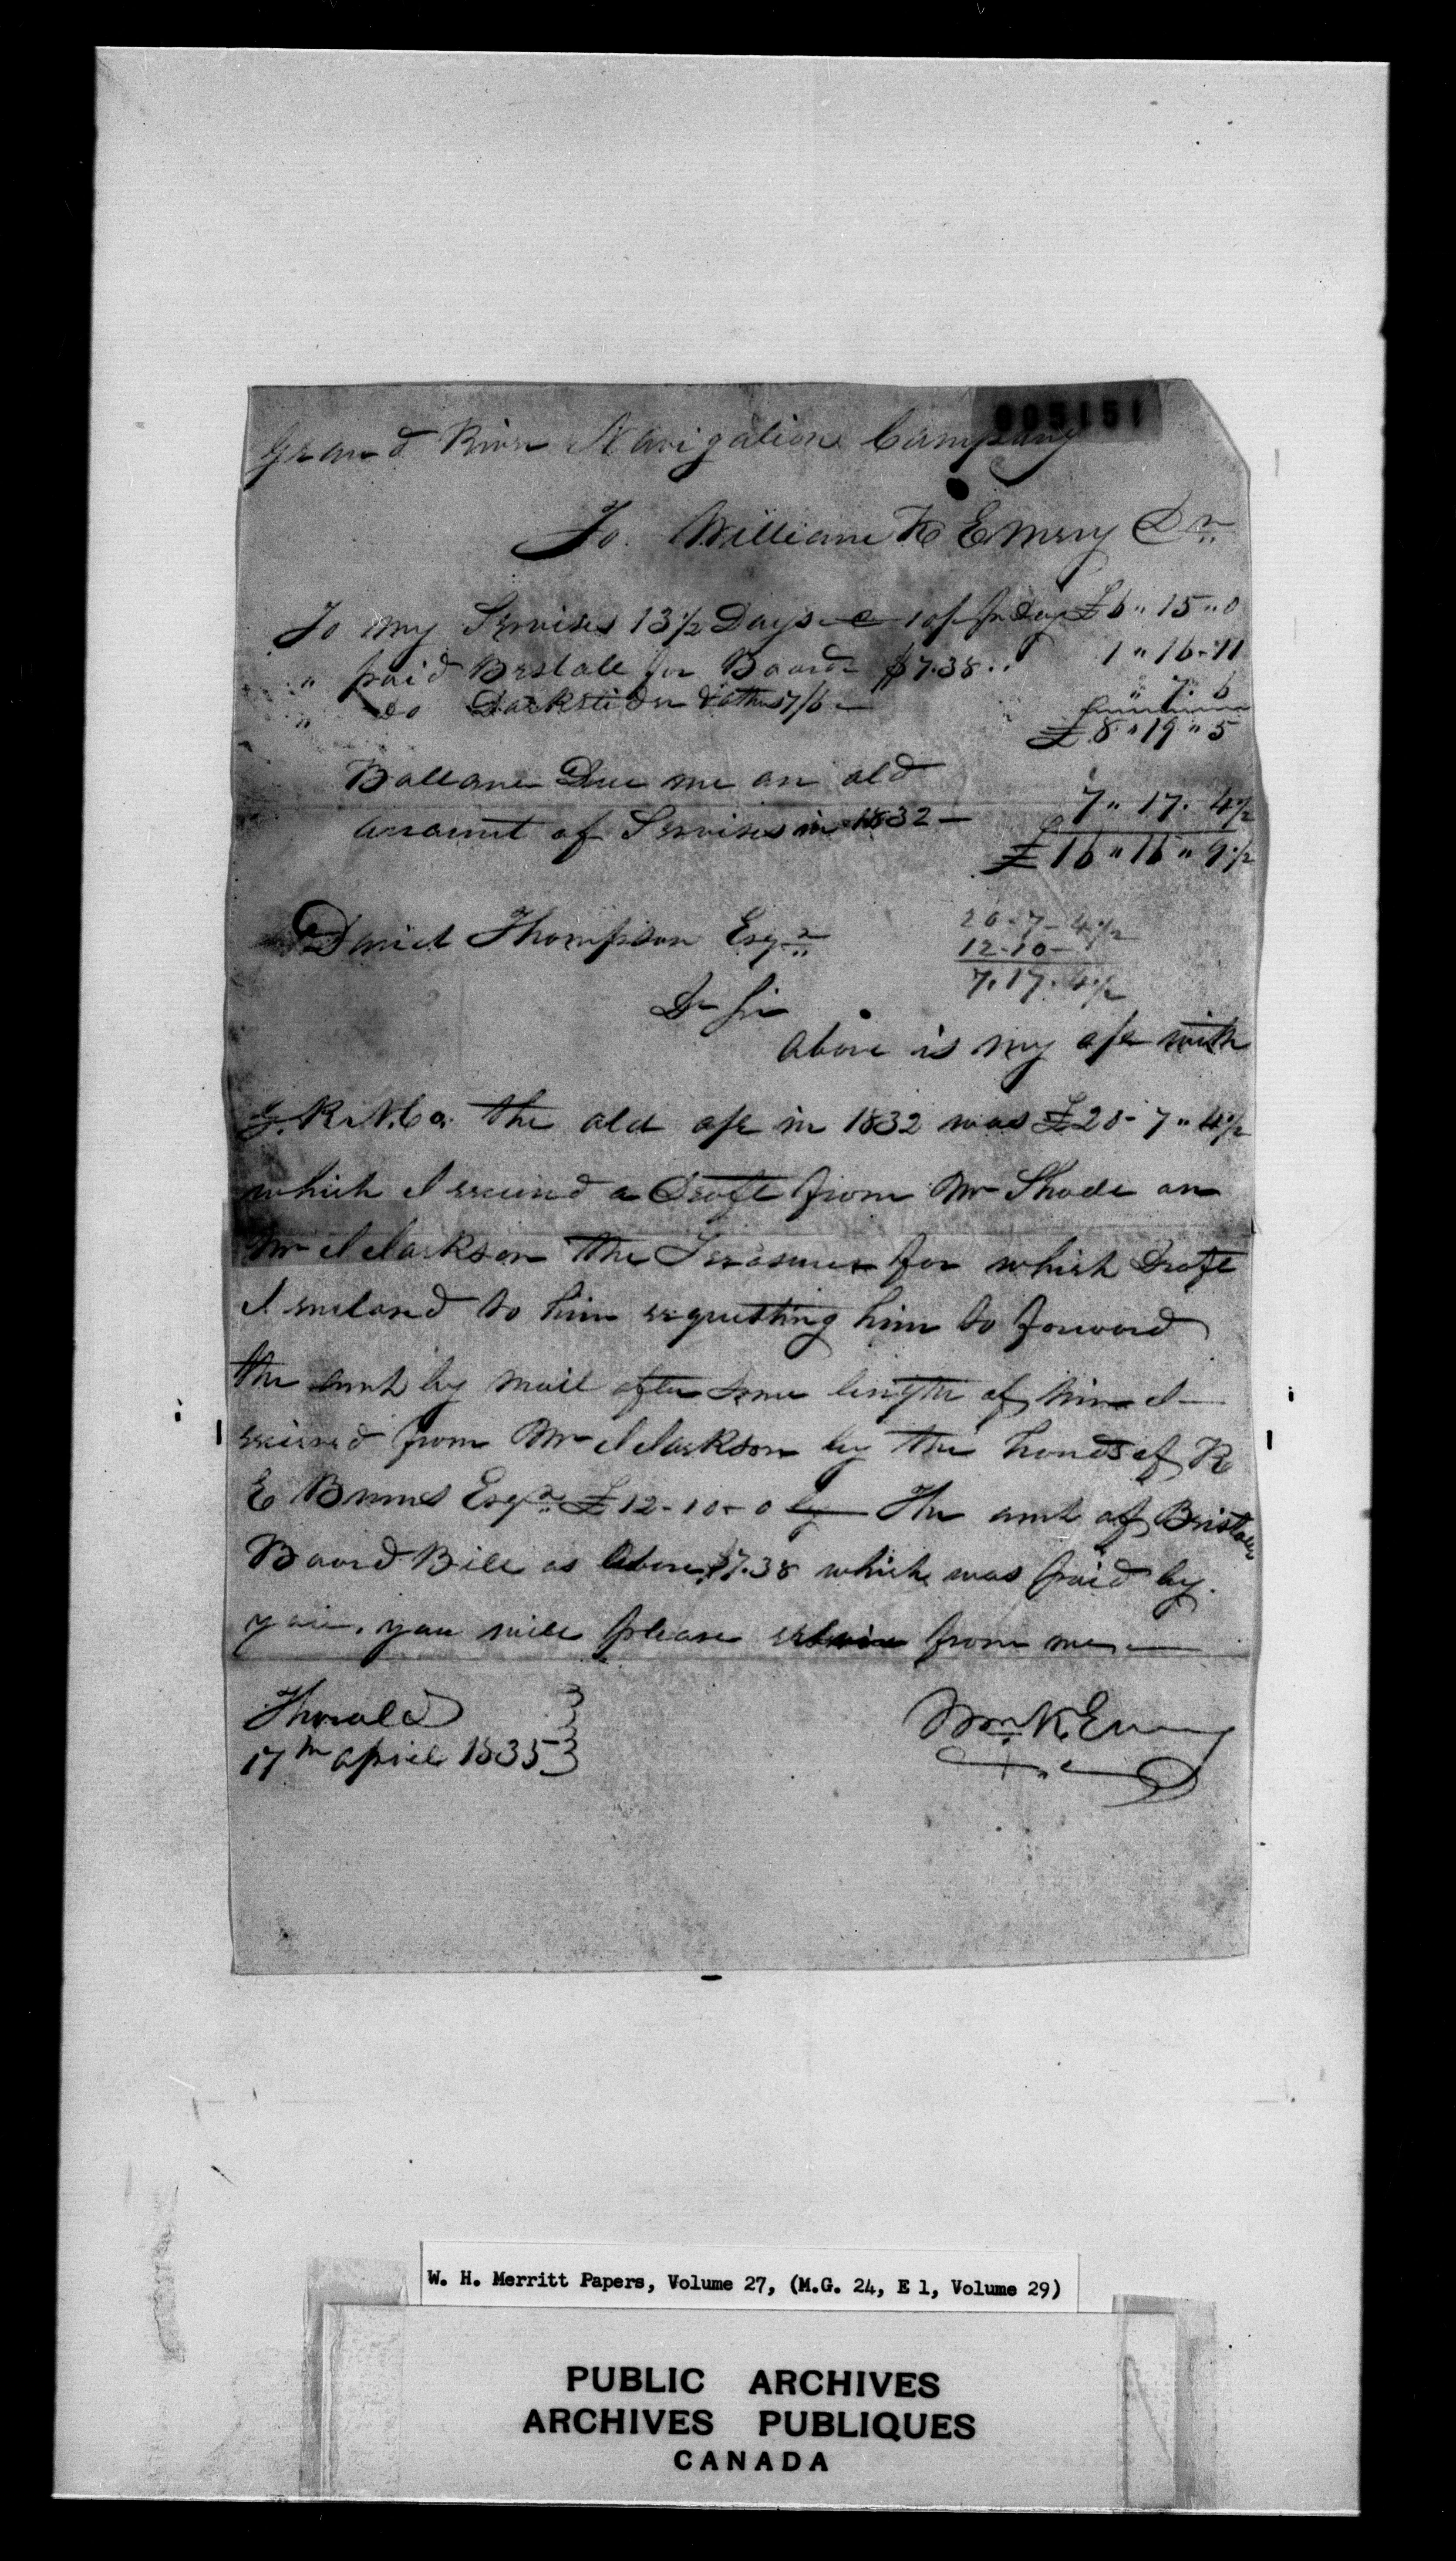 005151
Grand River Navigation Company
To William K Emery Dr
To my Servises 13½ Days @ 10/ pr Day £6 " 15 " 0
" paid Bristole for Board $7.38 .. 1 " 16 - 11
" Do & others 7/6 — " 7. 6
£8 " 19 " 5
Ballance Due me an old
7 " 17. 4½
account of Servises in 1832 —
£16 " 16 " 9½
David Thompson Esqr
20 - 7 - 4½
12 - 10 -
7. 17. 4½
Dr Sir
Above is my a/c with
G. R. N. Co. the old a/c in 1832 was £20 - 7 " 4½
which I received a Draft from Mr Shade on
Mr Jackson the Treasurer for which Draft
I enclosed to him requesting him to forward
the amt by mail after some length of time I
received from Mr Jackson by the hands of R
E Burns Esqr £12 - 10 - 0 The amt of Bristoles
Board Bill as above $7.38 which was paid by
you. you will please from me —
Thorold
17th April 1835
Wm K. Emery
W. H. Merritt Papers, Volume 27, (M.G. 24, E 1, Volume 29)
PUBLIC ARCHIVES
ARCHIVES PUBLIQUES
CANADA